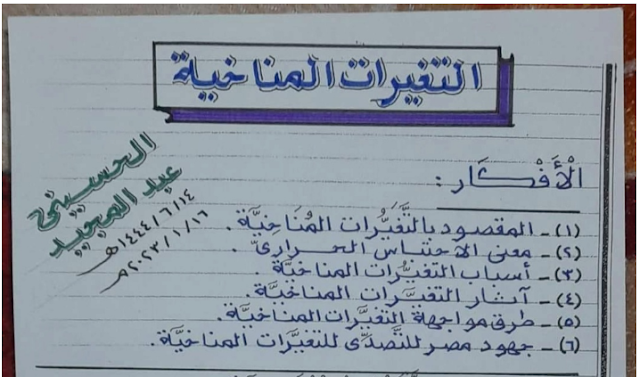 التغيرات المناخية
الْأَفْكَار :
(١) - المقصود بالتَّغَيُّرات المُنَاخِيَّة .
(٢) - معنى الاحتباس الحرارىّ .
(٣) - أسباب التغيُّرات المناخيَّة .
(٤) - آثار التغيَّرات المناخيَّة .
(٥) - طرق مواجهة التغيَّرات المناخيَّة .
(٦) - جهود مصر للتَّصدِّى للتغيَّرات المناخيَّة .
الحسينى
عبد المجيد
١٤٤٤/٦/١٤هـ
٢٠٢٣/١/١٦م